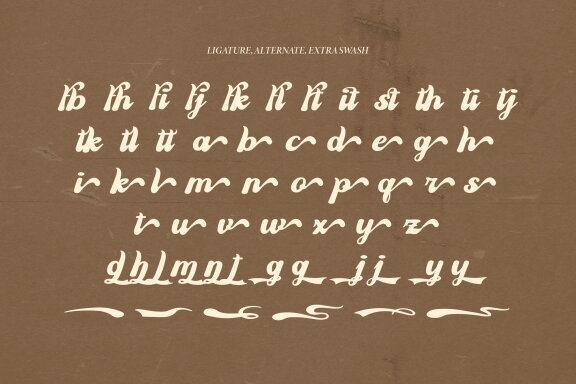 LIGATURE, ALTERNATE, EXTRA SWASH
fb fh fi fj fk fl ft it st th ti tj
tk tl tt a b c d e g h
i k l m n o p q r s
t u v w x y z
d h l m n t g g j j y y